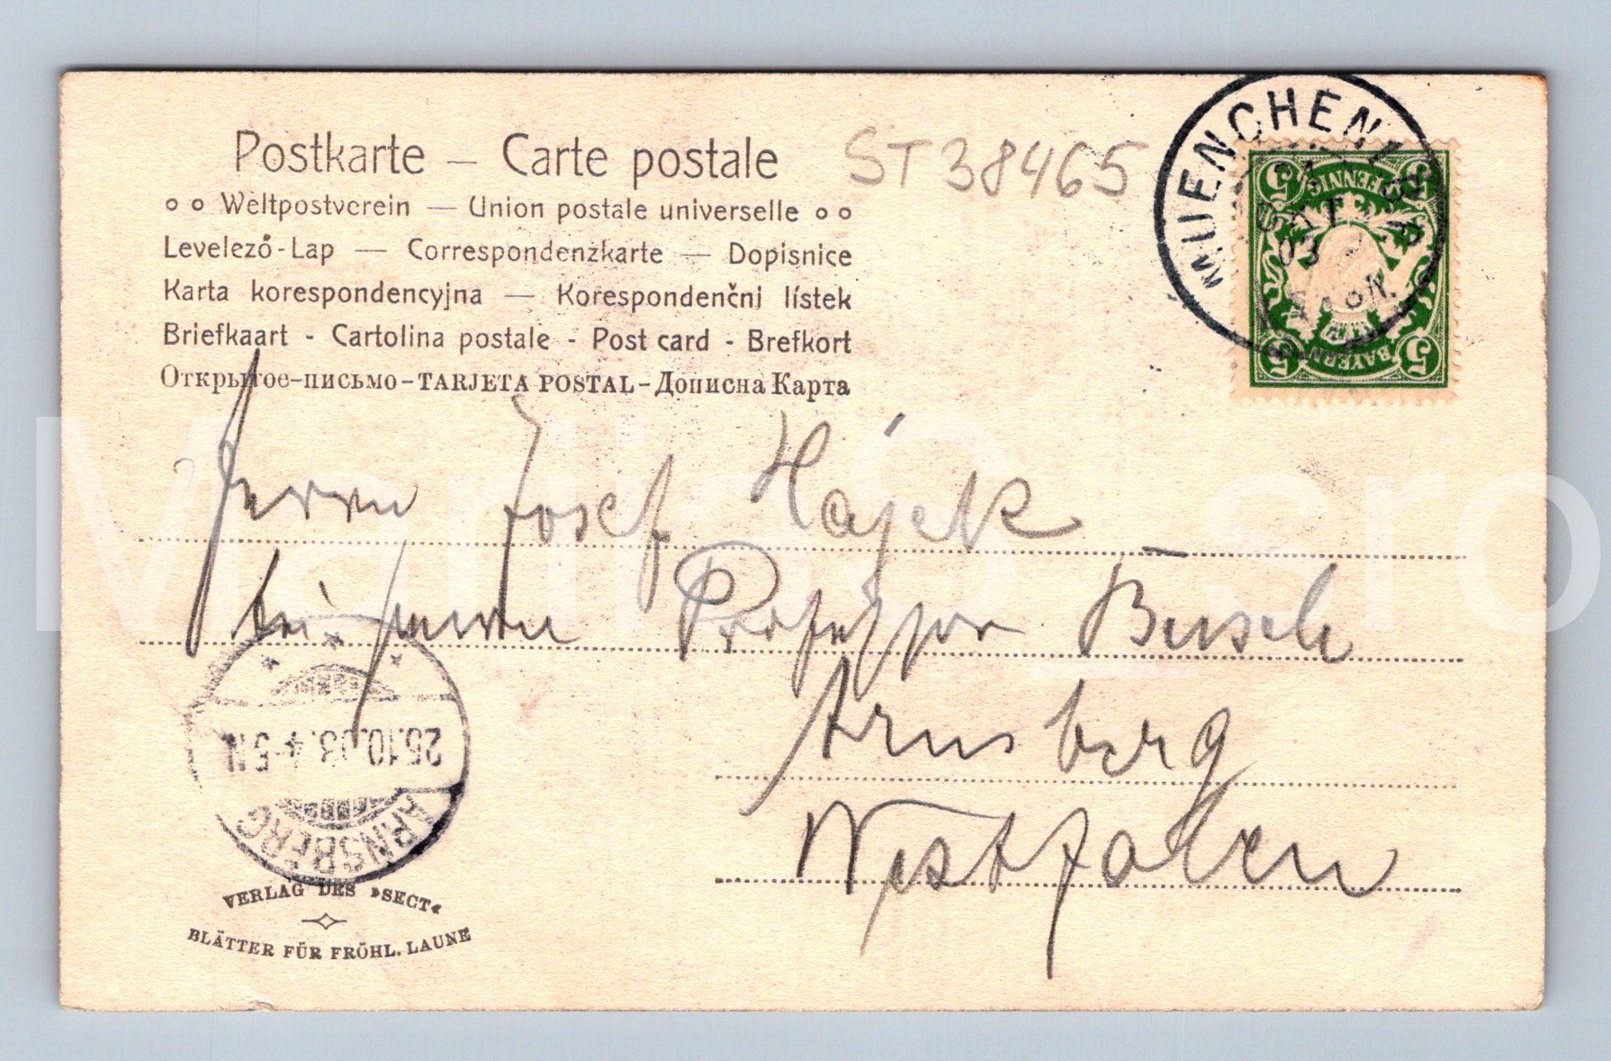 Postkarte – Carte postale
ST38465
∘∘ Weltpostverein — Union postale universelle ∘∘
Levelező-Lap — Correspondenzkarte — Dopisnice
Karta korespondencyjna — Korespondenční lístek
Briefkaart - Cartolina postale - Post card - Brefkort
Открытое-письмо-TARJETA POSTAL-Дописна Карта
MUENCHEN
OKT
03
5 PFENNIG
BAYERN
Herrn Josef Hájek
bei Herrn Professor Busch
Arnsberg
Westfalen
26.10.03.4-5N.
ARNSBERG
VERLAG DES »SECT«
BLÄTTER FÜR FRÖHL. LAUNE